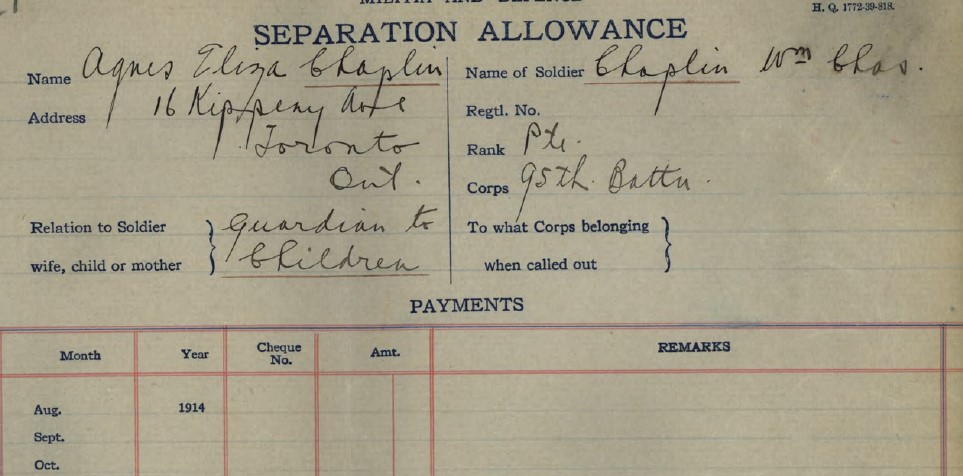 MILITIA AND DEFENCE
H. Q. 1772-39-818.
SEPARATION ALLOWANCE
Name Agnes Eliza Chaplin
Address 16 Kippeny Ave
Toronto
Ont.
Relation to Soldier
wife, child or mother } Guardian to
Children
Name of Soldier Chaplin Wm Chas.
Regtl. No.
Rank Pte.
Corps 95th. Battn.
To what Corps belonging
when called out }
PAYMENTS
Month Year Cheque No. Amt. REMARKS
Aug. 1914
Sept.
Oct.